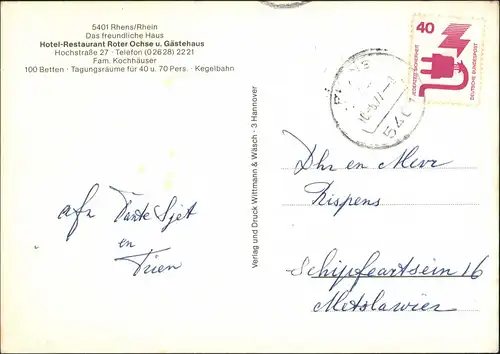 5401 Rhens/Rhein
Das freundliche Haus
Hotel-Restaurant Roter Ochse u. Gästehaus
Hochstraße 27 · Telefon (02628) 2221
Fam. Kochhäuser
100 Betten · Tagungsräume für 40 u. 70 Pers. · Kegelbahn
40
JEDERZEIT SICHERHEIT
DEUTSCHE BUNDESPOST
5401
Verlag und Druck Wittmann & Wäsch · 3 Hannover
afz Tante Sjet
en
Trien
Dhr en Mevr
Rispens
Schipfeartsein 16
Metslawier